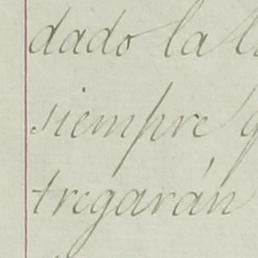 dado la
siempre
tregarán